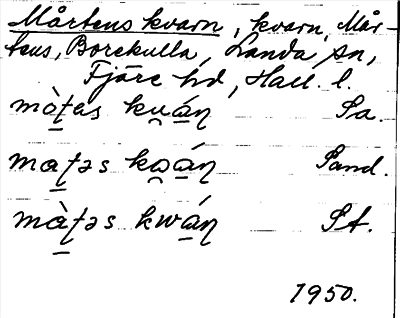 Mårtens kvarn, kvarn, Mår-
tens, Borekulla, Landa sn,
Fjäre hd, Hall. l.
mà̱ʈəs kṷá̱ɳ Sa.
ma̱ʈəs ko̯á̱ɳ Sand.
mà̱ʈəs kwá̱ɳ St.
1950.